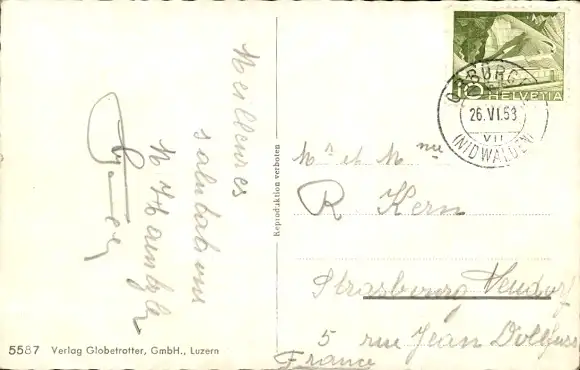 Meilleures
salutations
10 HELVETIA
BÜRGE
26.VI.53
VII
(NIDWALDEN)
Reproduktion verboten
Mr et Mme
R. Kern
Strasbourg Neudorf
5 rue Jean Dollfuss
France
5587 Verlag Globetrotter, GmbH., Luzern